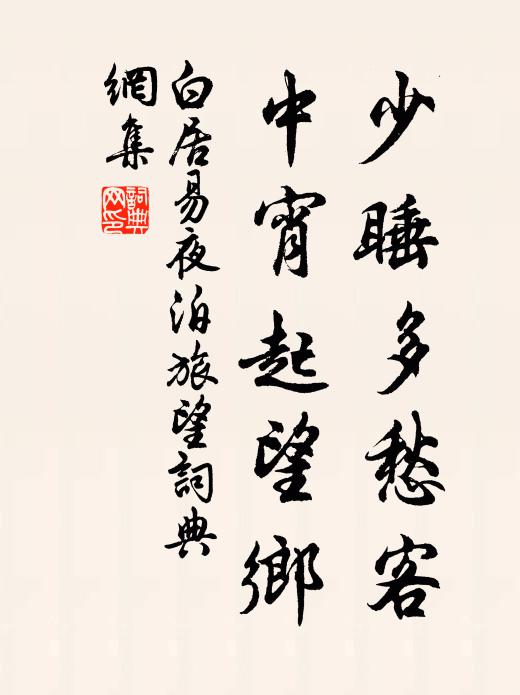 少睡多愁客
中宵起望鄉
白居易夜泊旅望詞典
網集
詞典网印